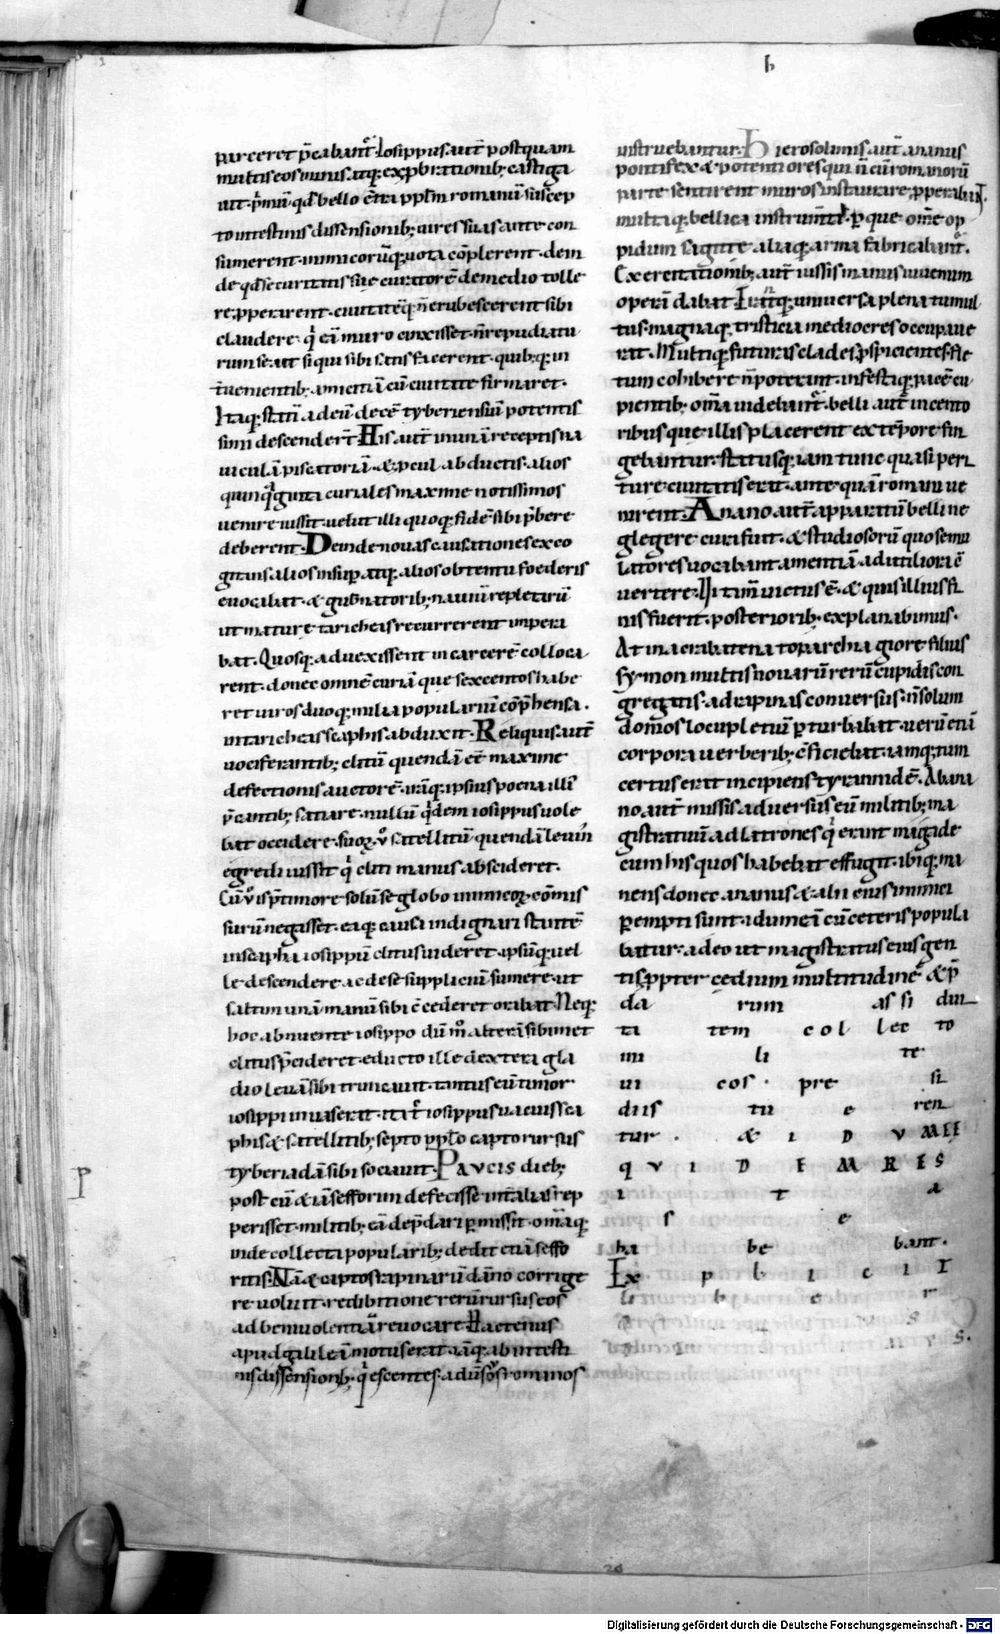 h
parceret p̄cabant̄. Iosippus aut̄ postquam
multis eos minis atq; exp̄brationib; castiga
uit p̄mū qđ bello c̄tra pp̄lm romanū suscep
to intestinis dissensionib; uires suas ante con
sumerent inimicorūq; uota cōplerent. dein
de qđ securitatis sue curatorē de medio tolle
re, pperarent. ciuitatēq; n̄ erubescerent sibi
claudere. q̇ eā muro cinxisset. n̄ repudiatu
rum se. ait si qui sibi satisfacerent. quib; q; in
t̄uenientib; amicitiā cū ciuitate firmaret.
Itaq; statī ad eū decē tyberiensiū potentis
simi descendert̄ His aut̄ in unā receptis na
uiculā piscatoriā. & p̄cul abductis. alios
quinq̇ginta curiales maxime notissimos
uenire iussit. uelut illi quoq; fidē sibi p̄bere
deberent. Deinde nouas causationes exco
gitans alios insup̄ atq; alios obtentu foederis
euocabat. & gub̄natorib; nauiū repletarū
ut mature taricheas recurrerent impera
bat. Quosq; aduexissent in carcerē colloca
rent. donec omnē curiā que sexcentos habe
ret uiros duoq; milia popularium cōp̄hensa.
in taricheas scaphis abduxit. Reliquis aut̄
uociferantib; clitū quendā eē maxime
defectionis auctorē. iraq; ipsius poena illi
p̄cantib; satiare. nullū q̇dem iosippus uole
bat occidere. suoꝝ ṽ satellitū quendā leuin
egredi iussit q̇ cliti manus abscideret.
Cū ṽ is p̄timore solū se globo inimicoꝝ cōmis
surū negasset. eaq; causa indignari stantē
in scapha iosippū clitus uideret. ipsūq; uel
le descendere. ac de se suppliciū sumere. ut
saltim unā manū sibi c̄cederet orabat. Neq;
hoc abnuente iosippo dū m̊ alterā sibimet
clitus p̄cideret. educto ille dextera gla
dio leuā sibi truncauit. tantus eū timor
iosippi inuaserat. it̄ t̄ iosippus uacuis sca
phis & satellitib; septē pp̄lo capto rursus
tyberiadā sibi sociauit. PAVCIS dieb;
P
post eū & iā sefforim defecisse in talia rep
perisset. militib; eā dep̄dari p̄missit. om̄iaq;
inde collecta popularib; dedit etiā seffo
ritis. Nā & captos rapinarū dāno corrige
re uoluit. redibitione rerū rursus eos
ad beniuolentiā reuocare. Hactenus
apud galileā motus erat. iāq; ab intesti
nis dissensionib; q̇escentes. aduer̄sos romanos
instruebantur. Hierosolimis aut̄ ananus
pontifex & potentiores qui n̄ cū romanorū
parte sentirent muros instaurare, pperabant.
multaq; bellica instrum̄ta. p̄ que om̄e op
pidum sagitte aliaq; arma fabricabant̄.
Exercitationib; aut̄ iussis manus iuuenum
operā dabat. Eratq; uniuersa plena tumul
tus. magnaq; tristicia mediocres occupaue
rat. Multiq; futuras clades p̄spicientes. fle
tum cohibere n̄ poterant. infestaq; pacē cu
pientib; om̄a uidebant̄. belli aut̄ incento
ribus que illis placerent ex tempore fin
gebantur. statusq; iam tunc quasi peri
ture ciuitatis erat. ante quā romani ue
nirent. Anano aut̄ apparatū belli ne
glegere cura fuit. & studiosorū quos emu
latores uocabant amentiā ad utiliora c̄
uertere. Ut tam̄ uictus ē. & quis illius fi
nis fuerit. posteriorib; explanabimus.
At in acrabattena toparchia giore filius
symon multis nouarū rerū cupidis con
gregatis. ad rapinas conuersus. n̄ solum
domos locupletiū p̄turbabat. uerū etiā
corpora uerberib; c̄ficiebat. iamq; tum
certus erat incipiens tyrannidē. Ab ana
no aut̄ missis aduersus eū militib; ma
gistratuū ad latrones q̇ erant magade
cum his quos habebat effugit. ibiq; ma
nens donec ananus & alii eius inimici
p̄empti sunt. idumeā cū ceteris popula
batur. adeo ut magistratus eius gen
tis. ppter cedium multitudinē & p̄
da rum as si dui
ta tem col lec to
mi li te
ui cos . pre si
diis tu e ren
tur . & I D V MEE
Q V I D E M R E S
i t a
s e
ha be bant.
Ex p l i c i T
li b e r